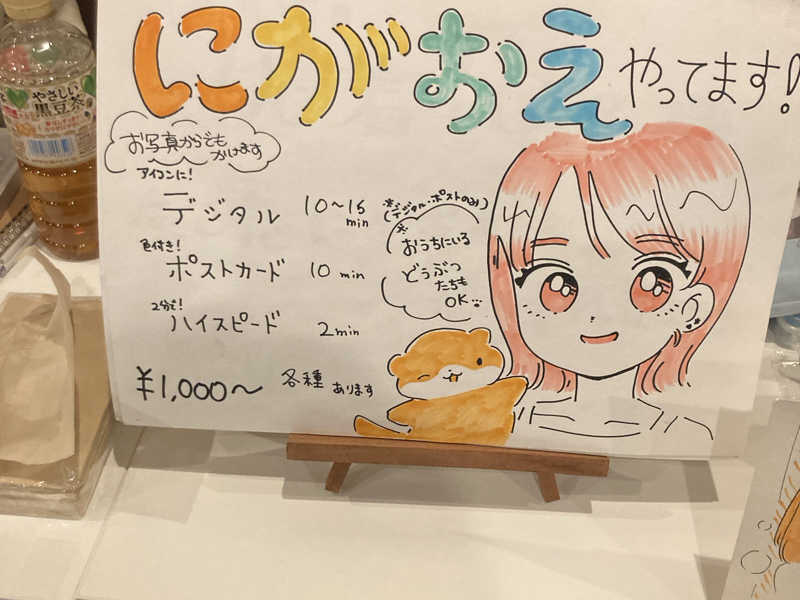 にがおえ やってます!
お写真からでも
かけます
アイコンに!
デジタル 10~15 min
色付き!
ポストカード 10 min
2分で!
ハイスピード 2min
¥1,000~ 各種 あります
※(デジタル・ポストのみ)
※
おうちにいる
どうぶつ
たちも
OK
やさしい
黒豆茶